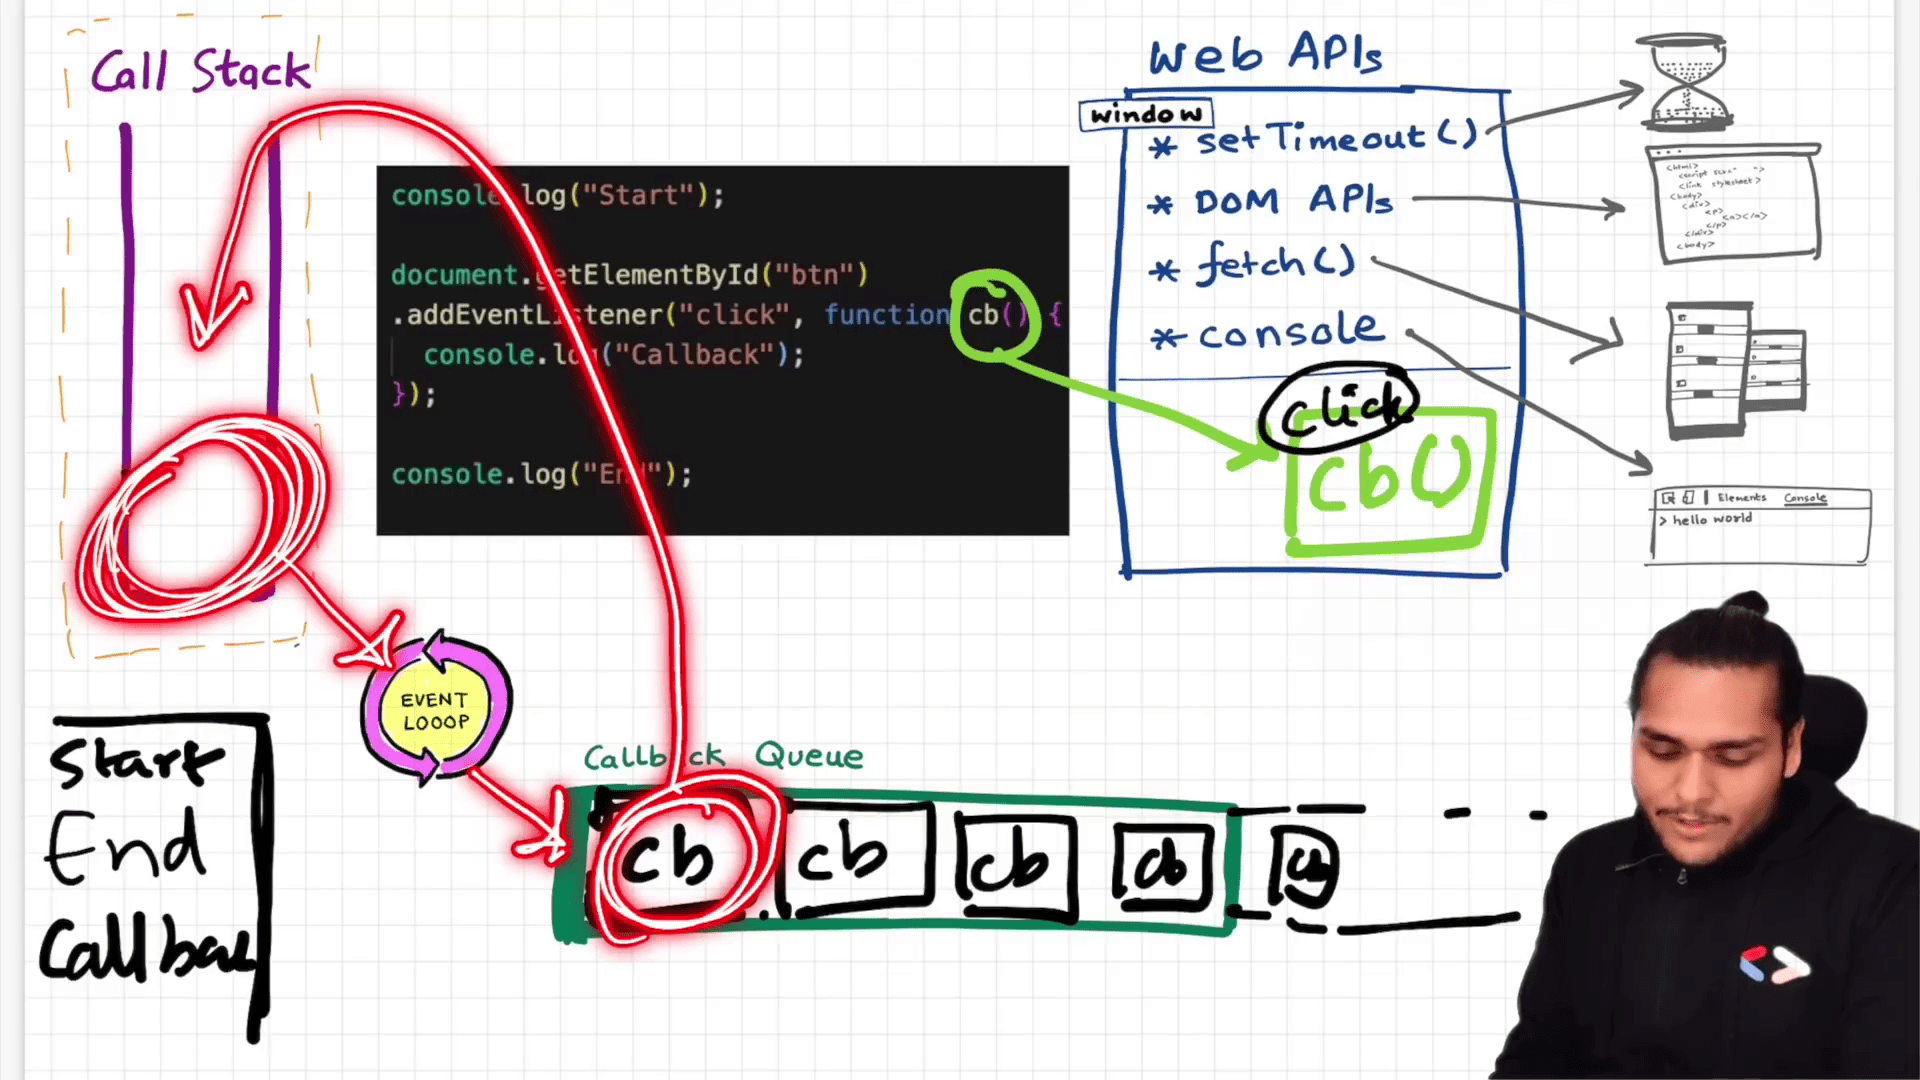 Call Stack
console.log("Start");
document.getElementById("btn")
.addEventListener("click", function cb() {
console.log("Callback");
});
console.log("End");
Web APIs
window
* setTimeout()
* DOM APIs
* fetch()
* console
click
cb()
<html>
<body>
<div>
<p>
</p>
</div>
<body>
Elements Console
> hello world
EVENT
LOOOP
Callback Queue
cb cb cb cb cb
Start
End
Callbac